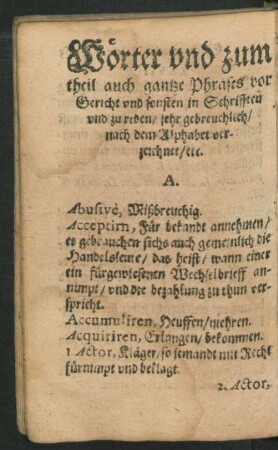 Wörter vnd zum
theil auch gantze Phrases vor
Gericht vnd sonsten in Schrifften
vnd zu reden/ sehr gebreuchlich/
nach dem Alphabet ver-
zeichnet/etc.
A.
Abusivè, Mißbreuchig.
Acceptirn, Für bekandt annehmen/
es gebrauchen sichs auch gemeinlich die
Handelsleute/ das heist/ wann einer
ein fürgewiesenen Wechselbrieff an-
nimpt/ vnd die bezahlung zu thun ver-
spricht.
Accumuliren, Heuffen/mehren.
Acquiriren, Erlangen/bekommen.
1 Actor, Kläger/ so jemandt mit Recht
fürnimpt vnd beklagt.
2. Actor,